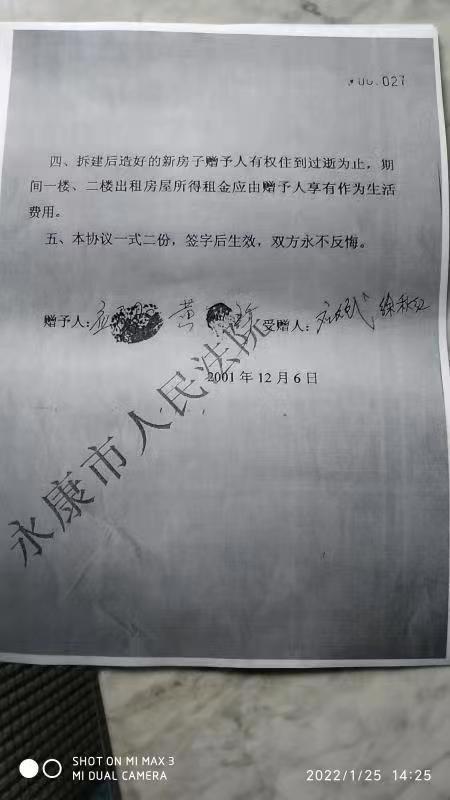 四、拆建后造好的新房子赠予人有权住到过逝为止，期
间一楼、二楼出租房屋所得租金应由赠予人享有作为生活
费用。
五、本协议一式二份，签字后生效，双方永不反悔。
赠予人： 黄 受赠人：
2001 年 12 月 6 日
永康市人民法院
SHOT ON MI MAX 3
MI DUAL CAMERA
2022/1/25 14:25